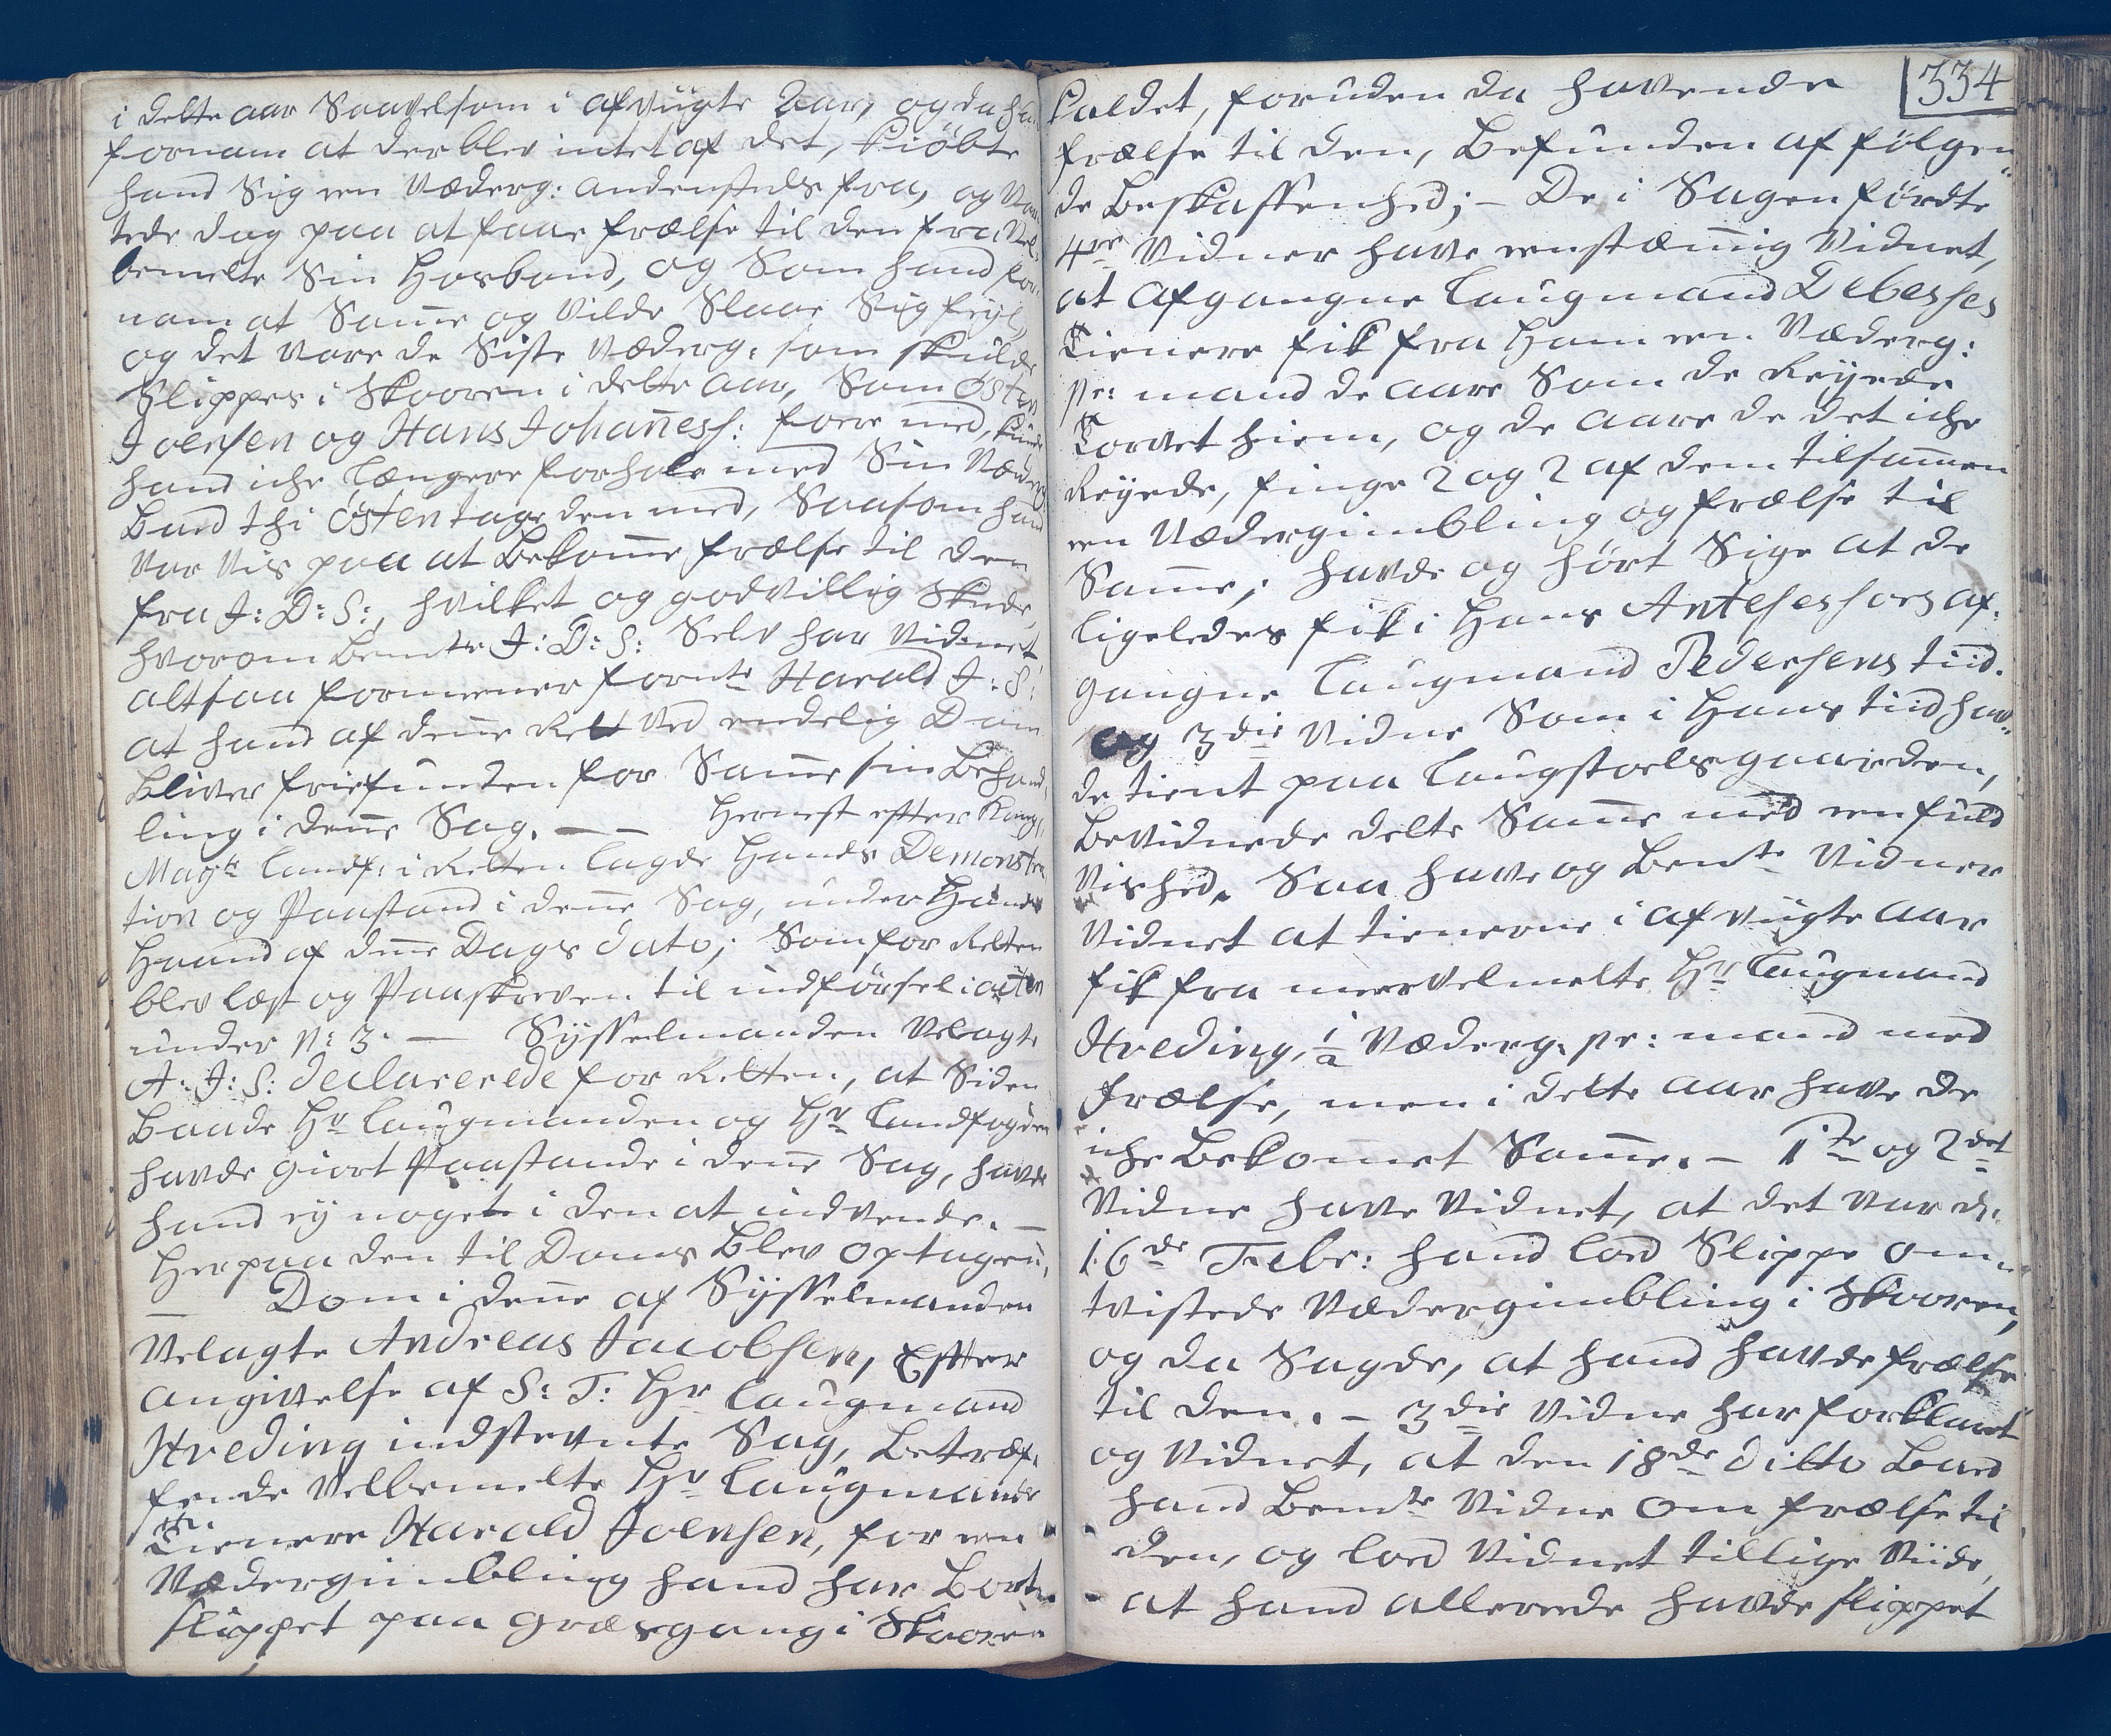 i dette aar Saavelsom i afvigte Aar, og da ha
fornam at der blev intet af det, kiøbte
hand Sig een Væderg: andenstæds fra, og Ven
tede dog paa at faae frælse til den fra Vel
bemelte Sin Hosbond, og Som hand for
nam at Samme og vilde Slaae Sig feyl,
og det vare de Siste Væderg: som skulde
Slippes i Skooren i dette aar, Som Østen
Joensen og Hans Johanness: foere med, kunde
hand iche længere forhale med Sin Væderg
Bad thi Østen tage den med, Saasom hand
var vis paa at Bekomme frælse til den
fra J: D: S:, hvilket og godvillig Skede,
hvorom Bemte J: D: S: Selv har vidnet,
altsaa formeener fornte Harald J: S:
at hand af denne Ret ved endelig Dom
Bliver friefunden for Samme sin Behand,
ling i denne Sag. — — Hernest efter Kong,
Mayts landf: i Retten lagde Hands Demonstra
tion og Paastand i denne Sag, under Hands
Haand af denne Dags Dato; Som for Retten
blev læst og Paaskreven til indførsel i acten
under N: 3. — Sysselmanden Velagte
A: J: S: declarerede for Retten, at Siden
Baade Hr Laugmanden og Hr Landfogden
havde giort Paastande i denne Sag, havde
hand ey noget i den at indvende. —
Herpaa den til Doms Blev optagen,
— Dom i denne af Sysselmanden
Velagte Andreas Jacobsen, Efter
angivelse af S: T: Hr Laugmand
Hveding indstevnte Sag, Betræf,
fende Velbemelte Hr Laugmands
Tienere Harald Joensen, for een
Vædergimbling hand har Bort
slippet paa græsgang i Skooren
334
Kaldet, foruden da havende
frælse til den, Befunden af følgen
de Beskaffenhed; — De i Sagen førdte
4re Vidner have eenstæmmig Vidnet,
at afgangne Laugmand Debesses
Tienere fik fra Ham een Væderg:
pr: mand de aare Som de Reyede
Torvet hiem, og de aare de det iche
Reyede, finge 2 og 2 af dem tilsammen
een Vædergimbling og frælse til
Samme; havde og hørt Sige at de
ligeledes fik i Hans Antesessors af,
gangne Laugmand Pedersens tiid.
og 3die Vidne Som i Hans tiid hav,
de tient paa Laugstoelsgaarden,
Bevidnede dette Samme med een fuld
Vished. Saa have og Bemte Vidner
Vidnet at tienerne i afvigte aar
fik fra meervelmelte Hr Laugmand
Hveding, 1/2 Væderg. pr: mand med
Frælse, men i dette aar have de
iche Bekommet Samme. — 1te og 2det
Vidne have Vidnet, at det var d.
16de Febr: hand lod Slippe om,
tvistede Vædergimbling i Skooren,
og da Sagde, at hand havde frælse
til den. — 3die Vidne har forklaret
og Vidnet, at den 18de ditto Bad
hand Bemte Vidne om frælse til
den, og lod Vidnet tillige Viide,
at hand allerede havde slippet